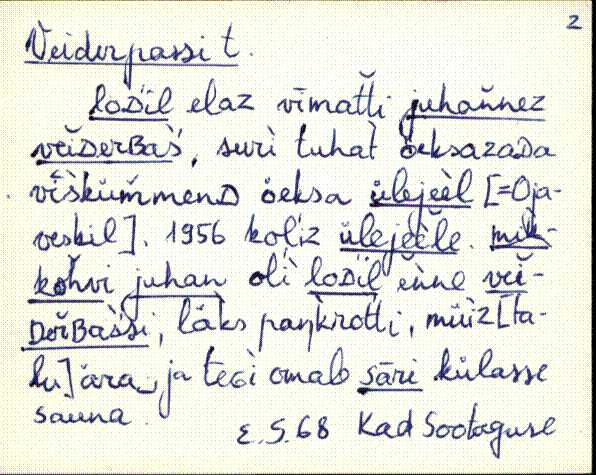 2
Veiderpassi t.
loᴅ́il elaz vīmat́ti juhańnez
vèiᴅerʙaś, suri tuhàt ȫeksazaᴅa
vīskümmenᴅ öeksa ülejèèl [=Oja-
veskil]. 1956 koĺiz ülejèèle. mik-
kohvi juhan oli loᴅ́il ènne vèi-
ᴅerʙaśsi, läks paŋkrotti, müiz [ta-
lu] ära ja teGi omale sāri külasse
sauna.
E.S.68 Kad Sootaguse